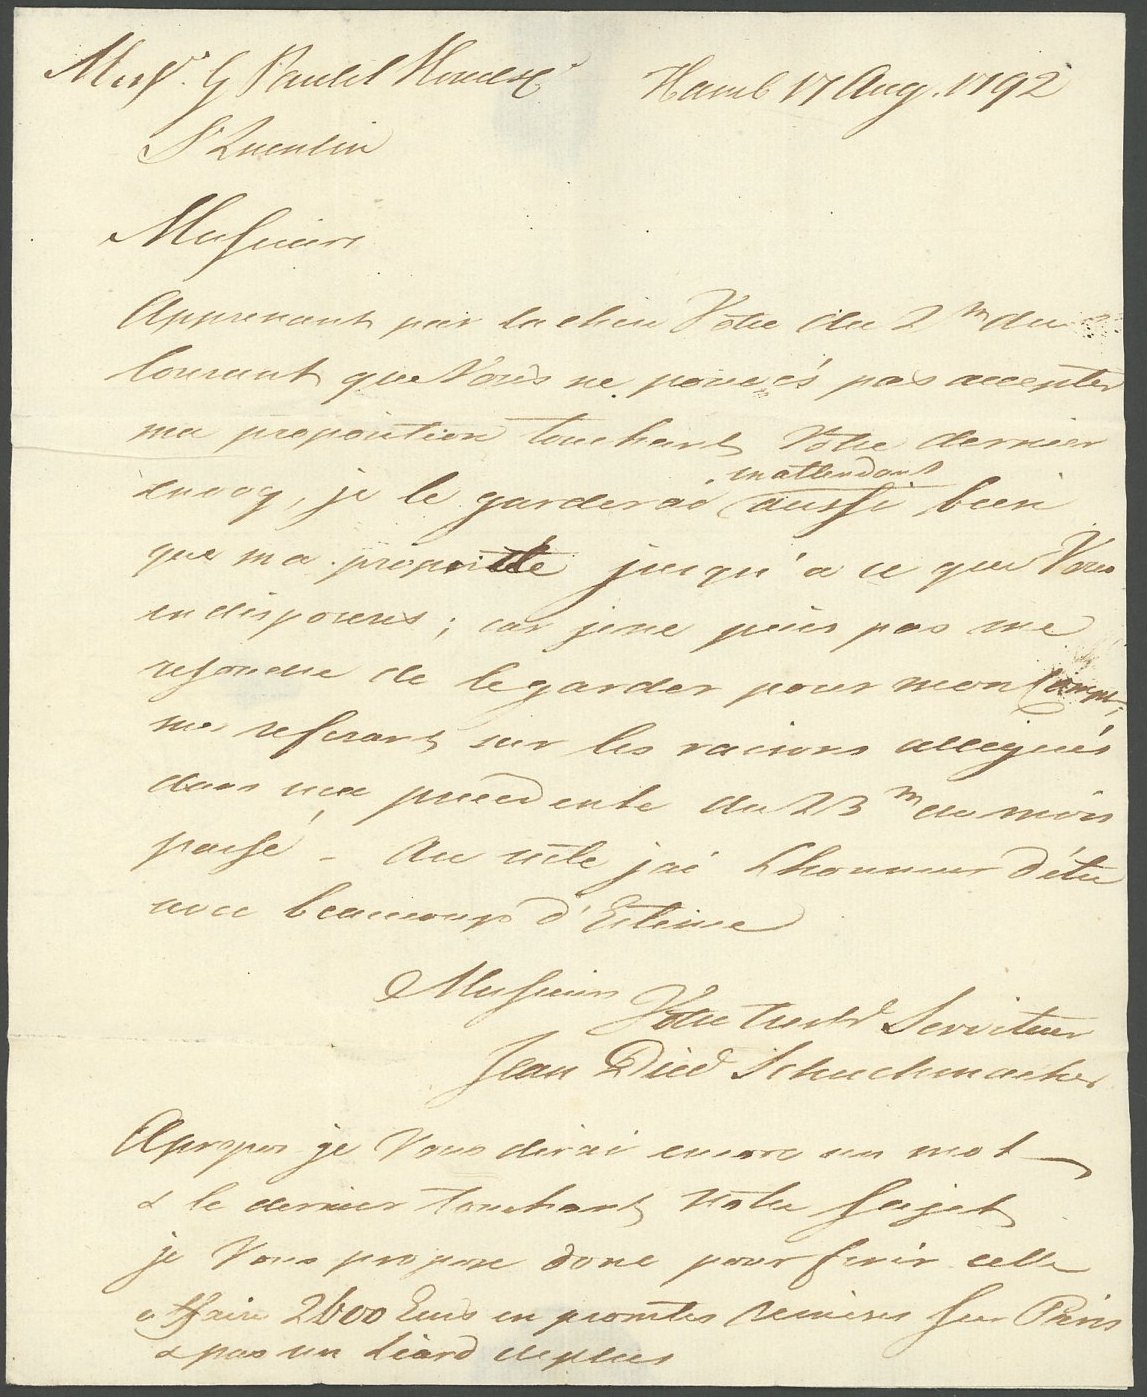 Mess.rs G Paulet Hamb 17 Aug. 1792
St Quentin
Messieurs
Apprenant par la chere Votre du 2m du
Courant que Vous ne pouvés pas accepter
ma proposition touchant Votre dernier
envoy, je le garderai aussi bien
en attendant
que ma proprieté jusqu'a ce que Vous
en disposeres; car je ne puis pas me
resoudre de le garder pour mon Compte,
me referant sur les raisons allegués
dans ma precedente du 23m du mois
passé - Au reste j'ai L'honneur d'étre
avec beaucoup d'Estime
Messieurs
Votre Serviteur
Jean Died Schuchmacher
Apropos je Vous dirai encore un mot
& le dernier touchant notre Sujet
je Vous propose donc pour finir cette
affaire 2600 Ecus en promtes remises sur Paris
& pas un Liard de plus